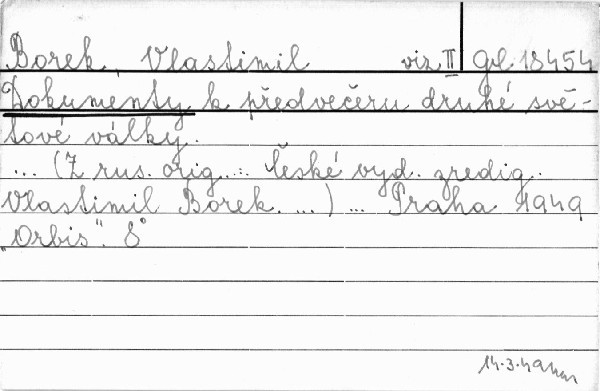 Borek, Vlastimil viz II gd 18454
Dokumenty k předvečeru druhé svě-
tové války.
... (Z rus. orig. ... české vyd. zredig.
Vlastimil Borek. ...) ... Praha 1949
„Orbis". 8°
14.3.49